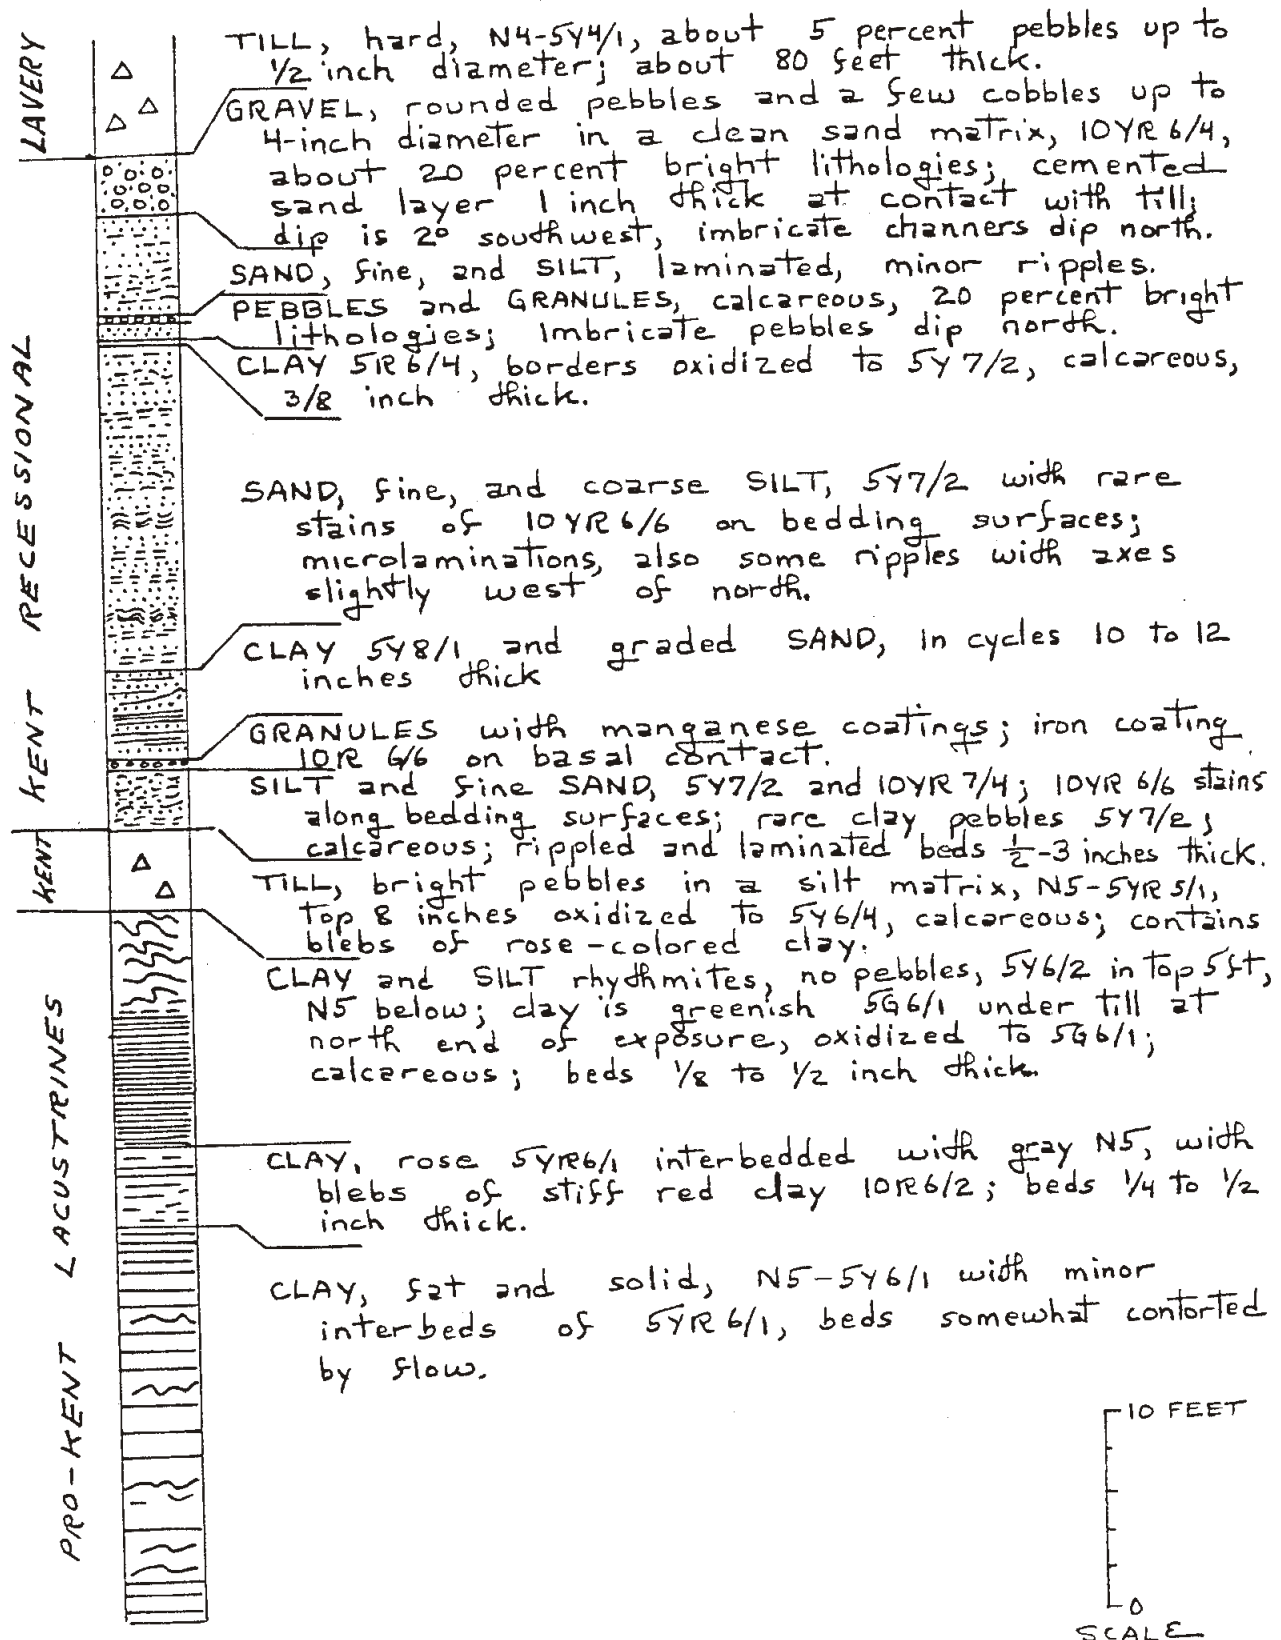 LAVERY
KENT RECESSIONAL
KENT
PRO-KENT LACUSTRINES
TILL, hard, N4-5Y4/1, about 5 percent pebbles up to
1/2 inch diameter; about 80 feet thick.
GRAVEL, rounded pebbles and a few cobbles up to
4-inch diameter in a clean sand matrix, 10YR 6/4,
about 20 percent bright lithologies; cemented
sand layer 1 inch thick at contact with till;
dip is 2° southwest, imbricate channers dip north.
SAND, fine, and SILT, laminated, minor ripples.
PEBBLES and GRANULES, calcareous, 20 percent bright
lithologies; Imbricate pebbles dip north.
CLAY 5R6/4, borders oxidized to 5Y 7/2, calcareous,
3/8 inch thick.
SAND, fine, and coarse SILT, 5Y7/2 with rare
stains of 10YR6/6 on bedding surfaces;
microlaminations, also some ripples with axes
slightly west of north.
CLAY 5Y8/1 and graded SAND, In cycles 10 to 12
inches thick
GRANULES with manganese coatings; iron coating
10R 6/6 on basal contact.
SILT and fine SAND, 5Y7/2 and 10YR 7/4; 10YR 6/6 stains
along bedding surfaces; rare clay pebbles 5Y7/2;
calcareous; rippled and laminated beds 1/2-3 inches thick.
TILL, bright pebbles in a silt matrix, N5-5YR5/1,
Top 8 inches oxidized to 5Y6/4, calcareous; contains
blebs of rose-colored clay.
CLAY and SILT rhythmites, no pebbles, 5Y6/2 in top 5ft,
N5 below; clay is greenish 5G6/1 under till at
north end of exposure, oxidized to 5G6/1;
calcareous; beds 1/8 to 1/2 inch thick.
CLAY, rose 5YR6/1 interbedded with gray N5, with
blebs of stiff red clay 10R6/2; beds 1/4 to 1/2
inch thick.
CLAY, fat and solid, N5-5Y6/1 with minor
interbeds of 5YR6/1, beds somewhat contorted
by flow.
10 FEET
0
SCALE